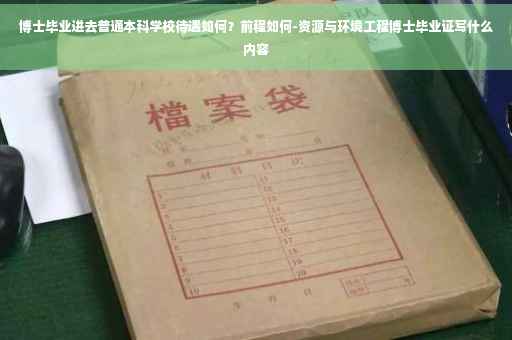 博士毕业进去普通本科学校待遇如何？前程如何-资源与环境工程博士毕业证写什么
内容
檔案袋
材料目次
1 11
2 12
3 13
4 14
5 15
6 16
7 17
8 18
9 19
10 20
年 月 日